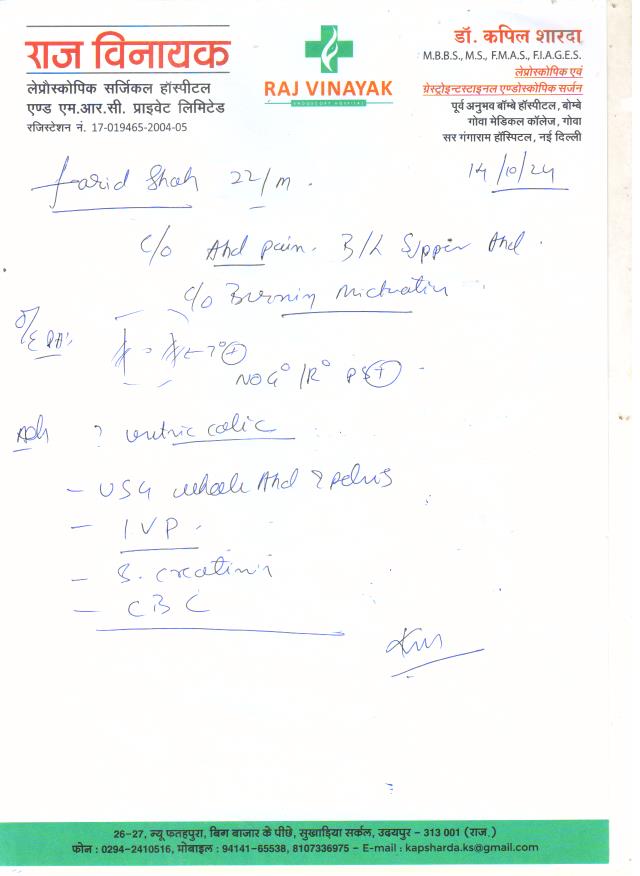 राज विनायक
लेप्रौस्कोपिक सर्जिकल हॉस्पीटल
एण्ड एम.आर.सी. प्राइवेट लिमिटेड
रजिस्टेशन नं. 17-019465-2004-05
RAJ VINAYAK
ENDOSCOPY HOSPITAL
डॉ. कपिल शारदा
M.B.B.S., M.S., F.M.A.S., F.I.A.G.E.S.
लेप्रोस्कोपिक एवं
ग्रेस्ट्रोइन्टस्टाइनल एण्डोस्कोपिक सर्जन
पूर्व अनुभव बॉम्बे हॉस्पिटल, बोम्बे
गोवा मेडिकल कॉलेज, गोवा
सर गंगाराम हॉस्पिटल, नई दिल्ली
Farid Shah 22/m.
14/10/24
c/o Abd pain. B/L Upper Abd.
c/o Burning Micturation
O/E P/A:
NO G° / R° PS +
Adv ? uretric colic
- USG whole Abd & pelvis
- IVP.
- S. creatinin
- CBC
26-27, न्यू फतहपुरा, बिग बाजार के पीछे, सुखाड़िया सर्कल, उदयपुर - 313 001 (राज.)
फोन : 0294-2410516, मोबाइल : 94141-65538, 8107336975 - E-mail : kapsharda.ks@gmail.com